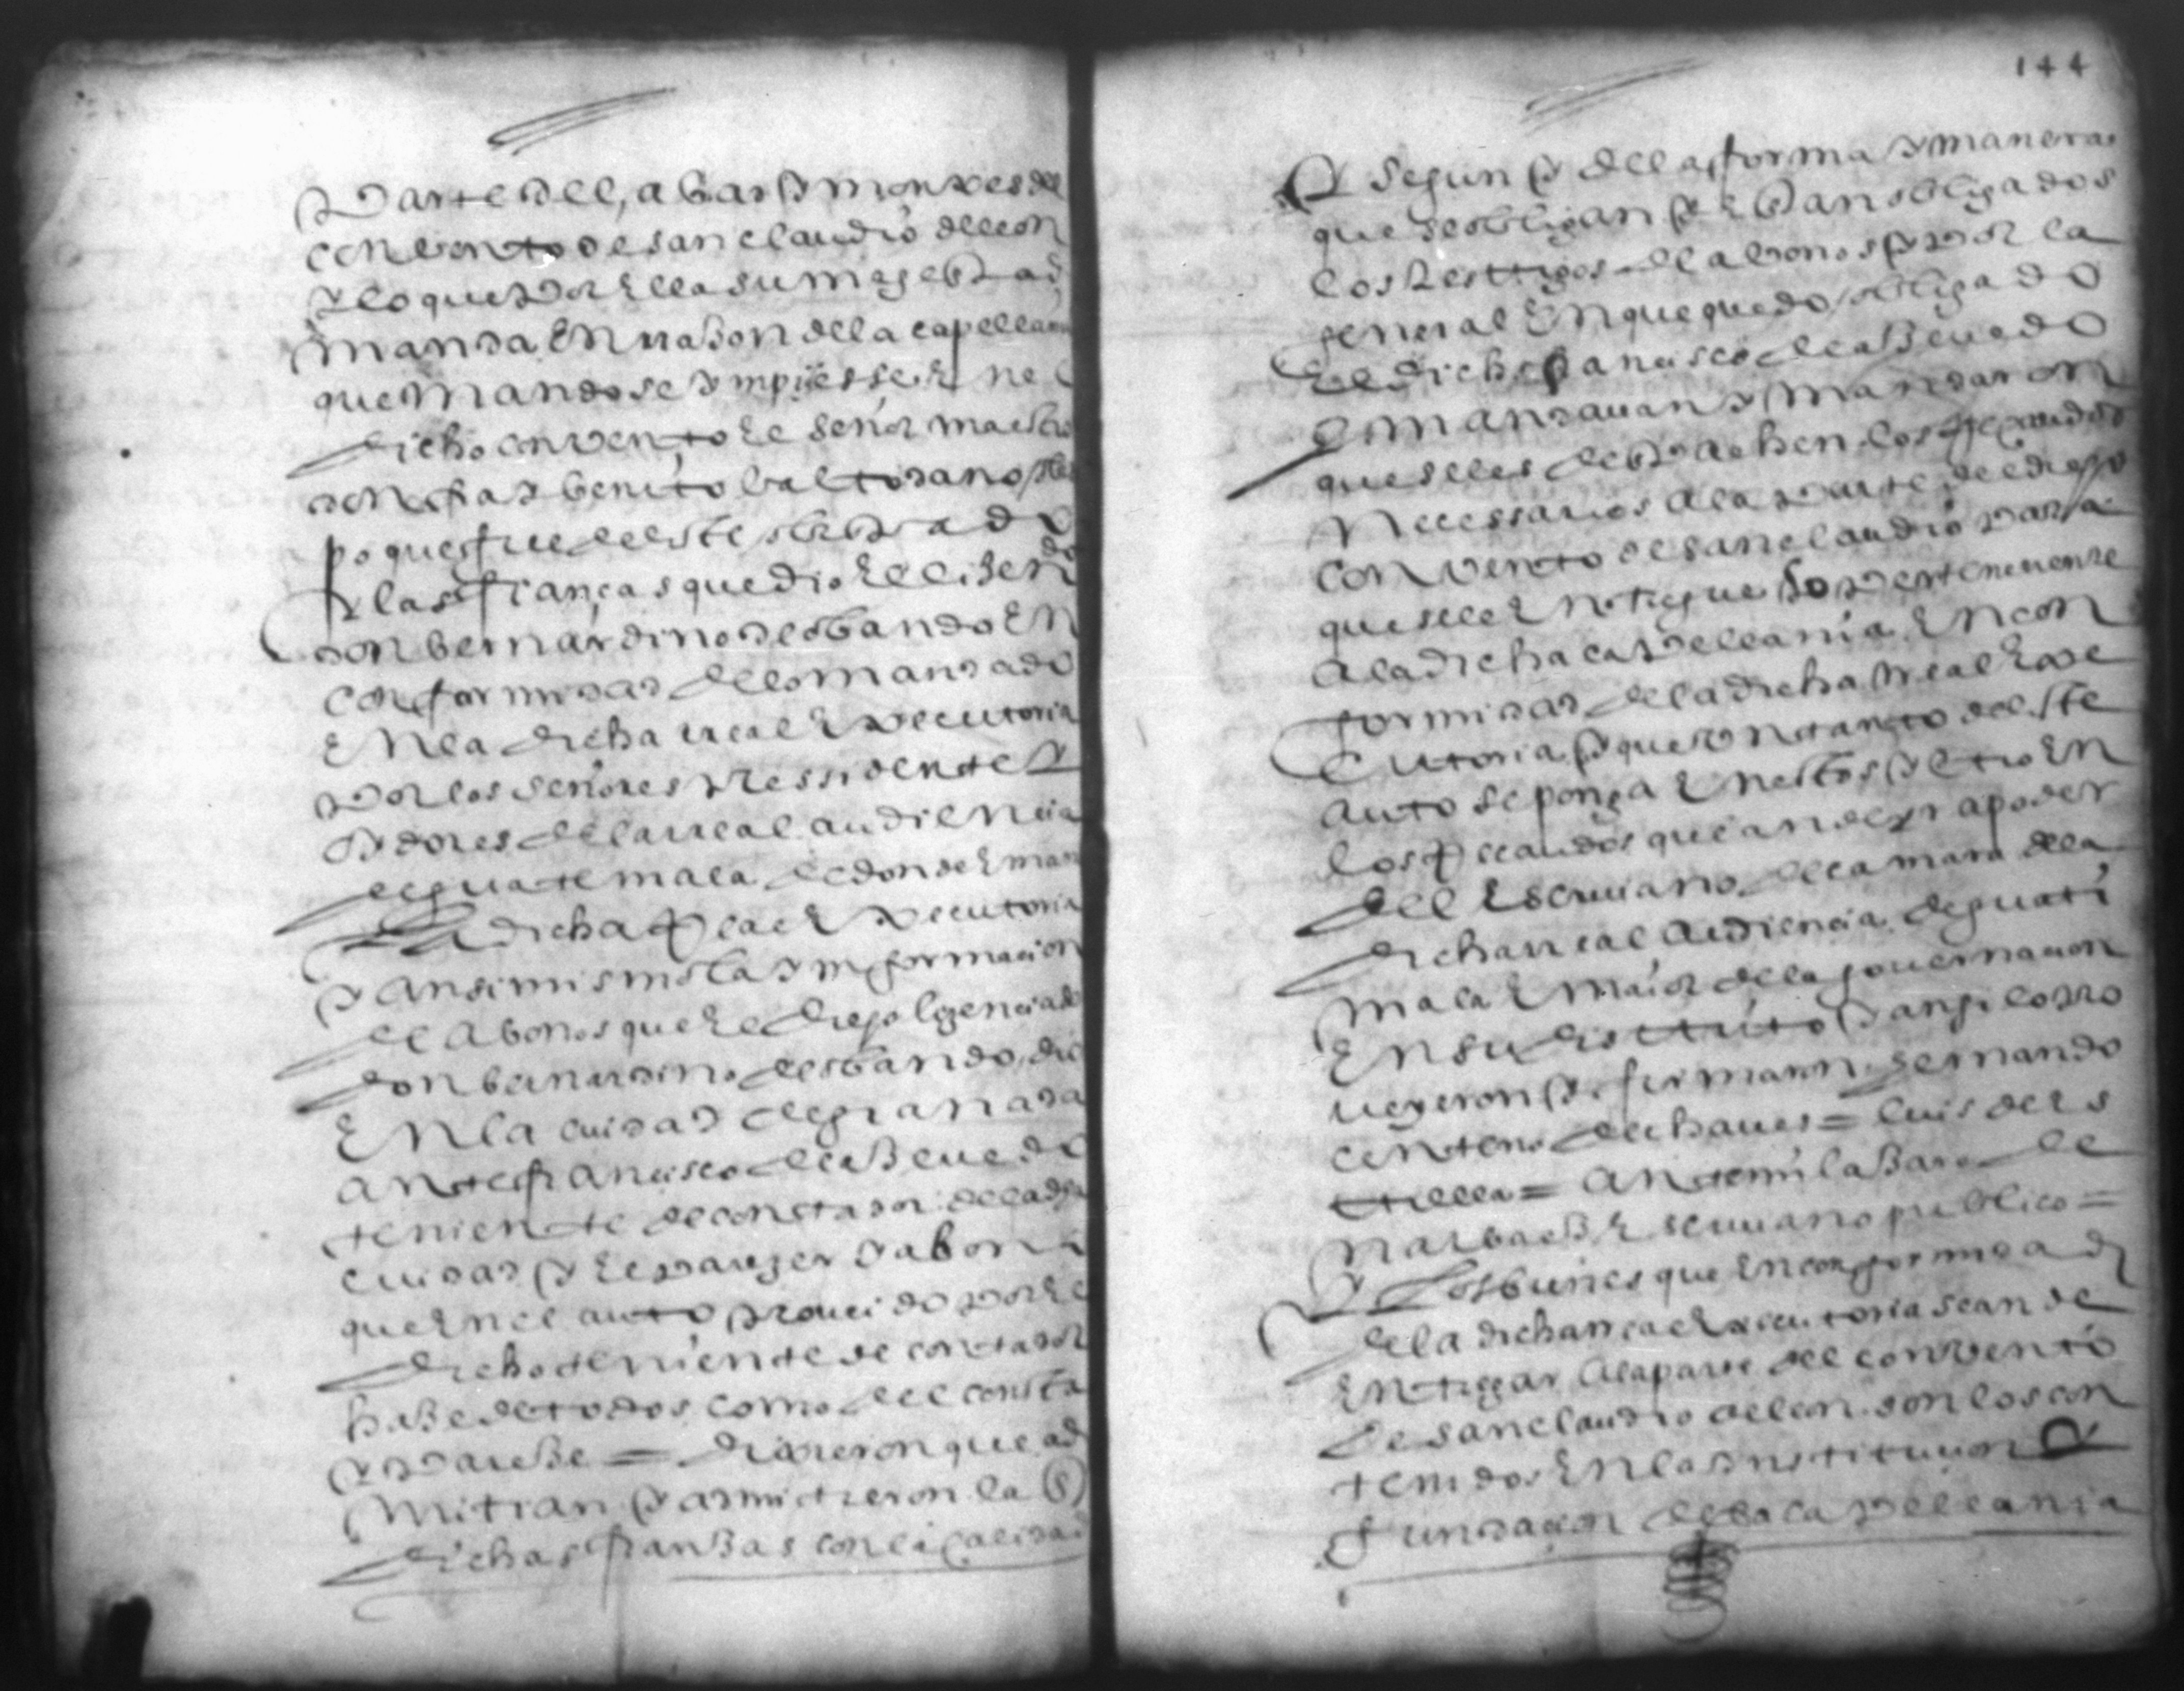 parte del, abad y monxes del
conbento de san claudio de leon
y lo que por ella su magestad
manda en rraçon de la capellania
que mando se ympussiese en el
dicho convento el señor maestro
don fray benito baltodano obis
po que fue deste obispado
y las fianças que dio el lisendo
don bernardino de obando en
conformidad de lo mandado
en la dicha rreal executoria
por los señores pressidente y
oydores de la rreal audiencia
de guatemala de donde emanó
la dicha rreal executoria
y ansimismo la ynformacion
de abonos que el dicho lizenciado
don bernardino de obando dio
en la ciudad de granada
ante francisco de asevedo
teniente de contador de la dha
ciudad y el parezer y abono
que en el auto proveido por el
dicho teniente de contador
haze de todos como de el consta
y pareze = dixeron que ad
mitian y admitieron la s
dichas fianzas con la calidad
144
Y segun y de la forma y manera
que se obligan y estan obligados
los testigos de abonos y por la
general en que quedo obligado
el dicho francisco de asevedo
y mandavan y mandaron
que se les despachen los rrecaudos
necessarios a la parte de el dicho
convento de san claudio para
que se le entregue lo perteneciente
a la dicha capellania en con
formidad de la dicha rreal exe
cutoria y que un tanto deste
auto se ponga en estos y otro en
los rrecaudos que an de yr a poder
del escrivano de camara de la
dicha rreal audiencia de guati
mala e maior de la governacion
en su districto y ansi lo pro
veyeron y firmaron fernando
centeno de chaves = luis de es
trella = ante mi lazaro de
narbaez escrivano publico =
Y los bienes que en conformidad
de la dicha rreal executoria se an de
entregar a la parte del convento
de san claudio de leon son los con
tenidos en la ynstitucion y
fundacion de la capellania